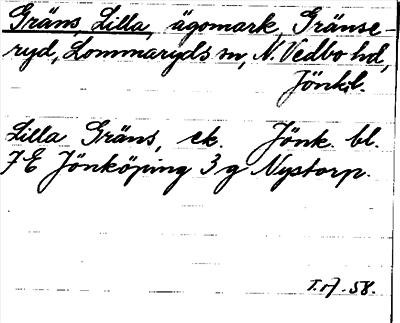 Gräns, Lilla, ägomark, Gränse-
ryd, Lommaryds sn, N. Vedbo hd,
Jönk.l.
Lilla Gräns, ek. Jönk. bl.
7E Jönköping 3 g Nystorp.
58.